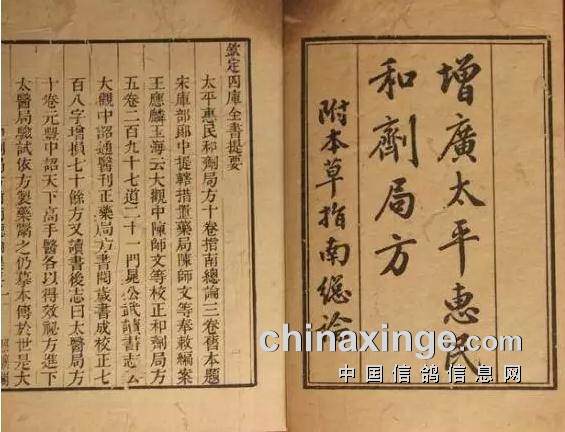 增廣太平惠民
和劑局方
附本草指南總論
欽定四庫全書提要
太平惠民和劑局方十卷指南總論三卷舊本題
宋庫部郎中提轄措置藥局陳師文等奉敕編案
王應麟玉海云大觀中陳師文等校正和劑局方
五卷二百九十七道二十一門晁公武讀書志云
大觀中詔通醫刊正藥局方書閱歲書成校正七
百八字增損七十餘方又讀書後志曰太醫局方
十卷元豐中詔天下高手醫各以得效祕方進下
太醫局驗試依方製藥鬻之仍摹本傳於世是大
chinaxinge.com
中国信鸽信息网